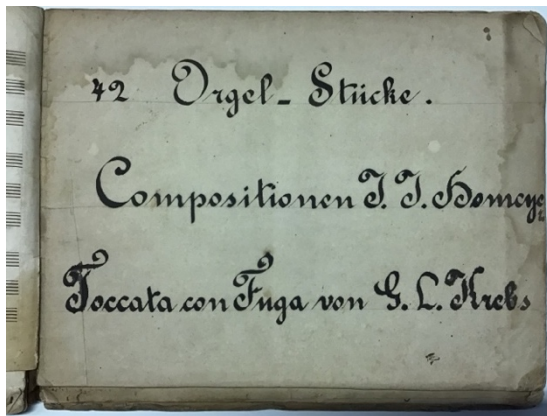 42 Orgel-Stücke.
Compositionen J. J. Homeyer
Toccata con Fuga von G. L. Krebs